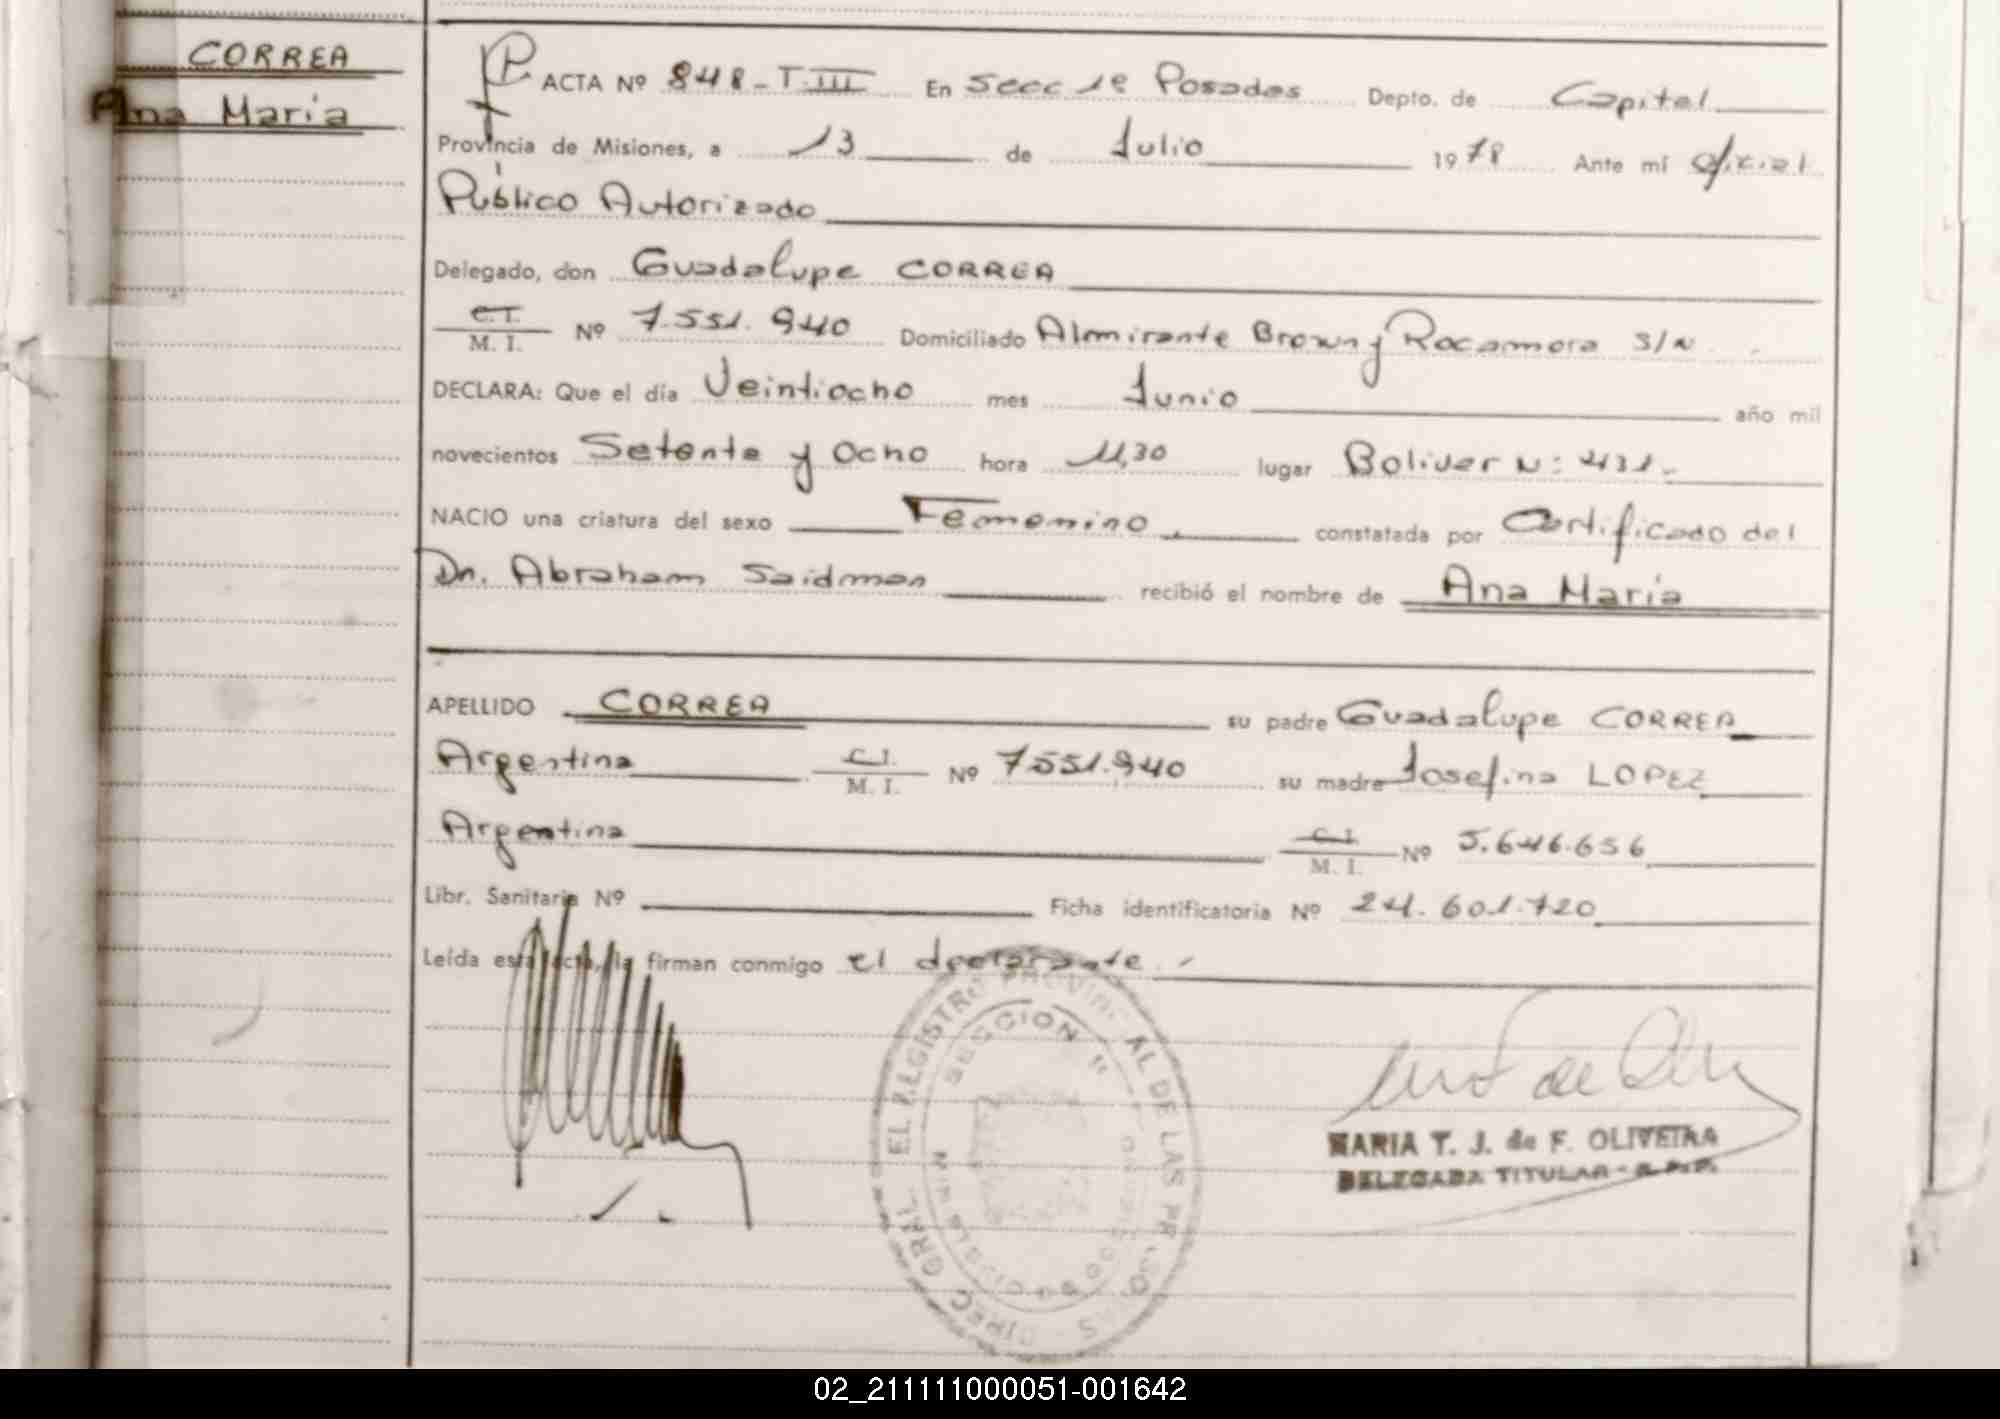 CORREA
Ana María
ACTA Nº 848-T.III En Secc 1ª Posadas Depto. de Capital
Provincia de Misiones, a 13 de Julio 1978 Ante mí Oficial
Público Autorizado
Delegado, don Guadalupe CORREA
C.I.
M. I. Nº 7.551.940 Domiciliado Almirante Brown y Rocamora S/N
DECLARA: Que el día Veintiocho mes Junio año mil
novecientos Setenta y Ocho hora 11,30 lugar Bolivar N: 431.-
NACIO una criatura del sexo Femenino constatada por Certificado del
Dn. Abraham Saidman recibió el nombre de Ana María
APELLIDO CORREA su padre Guadalupe CORREA
Argentina C.I.
M. I. Nº 7551.940 su madre Josefina LOPEZ
Argentina C.I.
M. I. Nº 5.646.656
Libr. Sanitaria Nº Ficha identificatoria Nº 24.601.720
Leída esta acta, la firman conmigo el declarante.-
DIREC. GRAL. EL REGISTRO PROVINCIAL DE LAS PERSONAS
SECCION 1ª
MISIONES
MARIA T. J. de F. OLIVEIRA
DELEGADA TITULAR - R.P.P.
02_211111000051-001642